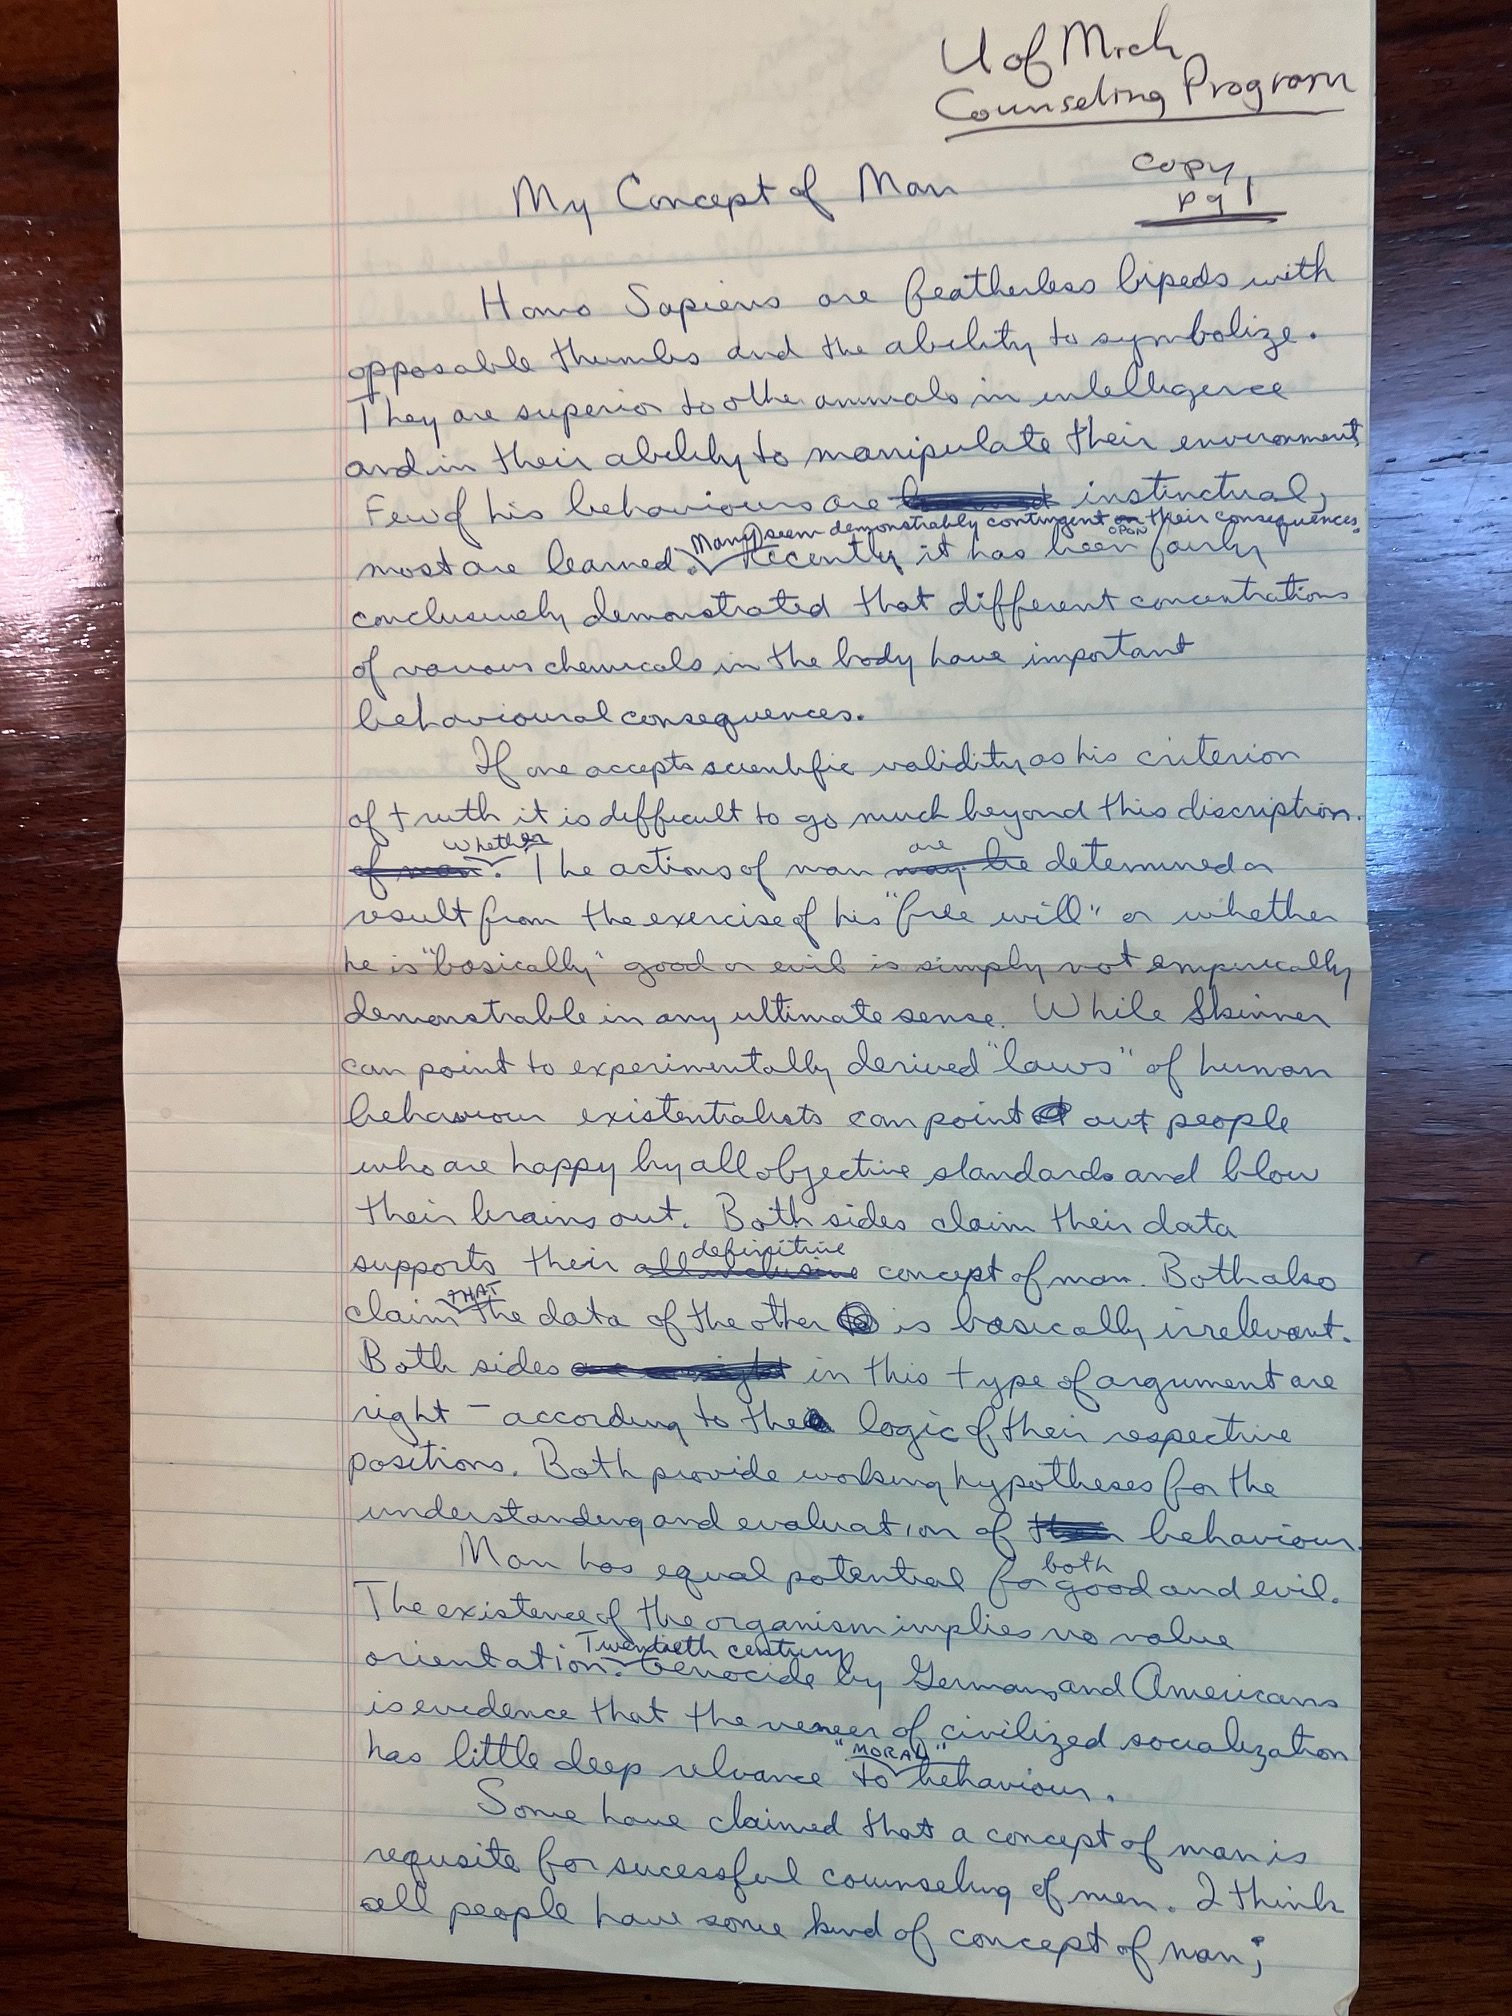 U of Mich
Counseling Program
copy
pg 1
My Concept of Man
Homo Sapiens are featherless bipeds with
opposable thumbs and the ability to symbolize.
They are superior to other animals in intelligence
and in their ability to manipulate their environment
Few of his behaviours are instinctual,
Many seem demonstrably contingent upon their consequences.
most are learned. Recently it has been fairly
conclusively demonstrated that different concentrations
of various chemicals in the body have important
behavioural consequences.
If one accepts scientific validity as his criterion
of truth it is difficult to go much beyond this discription.
whether are
of man. The actions of man may be determined or
result from the exercise of his "free will" or whether
he is "basically" good or evil is simply not emperically
demonstrable in any ultimate sense. While Skinner
can point to experimentally derived "laws" of human
behaviour existentialists can point out people
who are happy by all objective standards and blow
their brains out. Both sides claim their data
definitive
supports their all inclusive concept of man. Both also
THAT
claim the data of the other is basically irrelevant.
Both sides in this type of argument are
right - according to the logic of their respective
positions. Both provide working hypotheses for the
understanding and evaluation of behaviour.
both
Man has equal potential for good and evil.
The existence of the organism implies no value
Twentieth century
orientation. Genocide by Germans and Americans
is evidence that the veneer of civilized socialization
"MORAL"
has little deep relvance to behaviour.
Some have claimed that a concept of man is
requsite for sucessful counseling of men. I think
all people have some kind of concept of man;